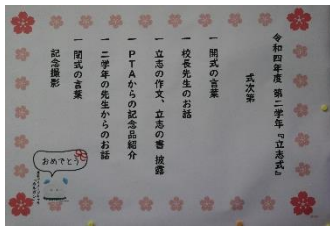 令和四年度 第二学年『立志式』
式次第
一 開式の言葉
一 校長先生のお話
一 立志の作文、立志の書 披露
一 PTAからの記念品紹介
一 二学年の先生からのお話
一 閉式の言葉
記念撮影
おめでとう